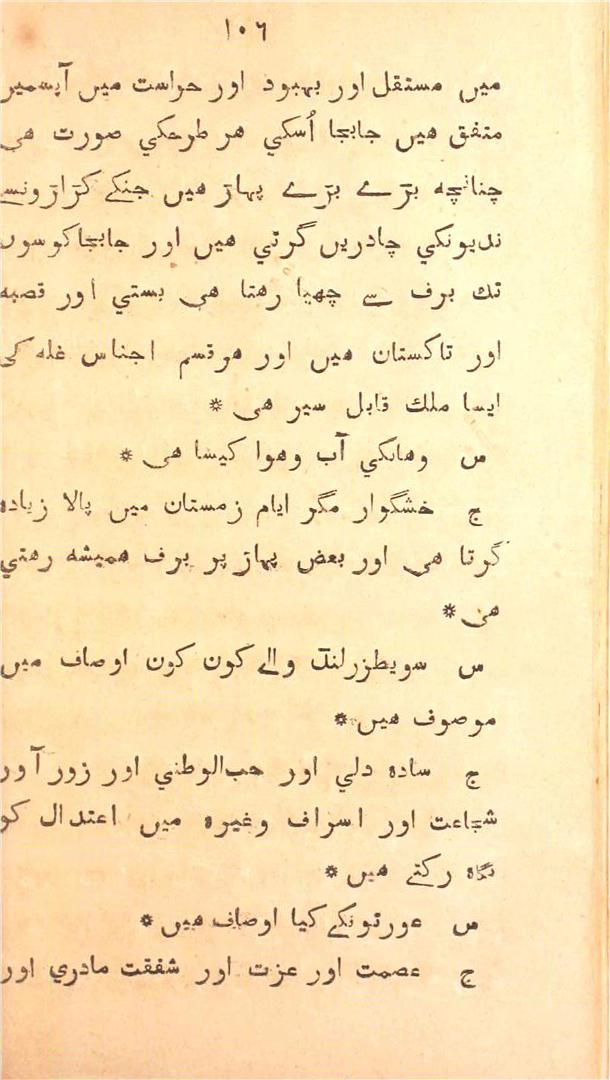 ۱۰۶
میں مستقل اور بہبود اور حراست میں آپسمیں
متفق هیں جابجا اُسکي هر طرحکي صورت هی
چنانچه بڑے بڑے پہاڑ هیں جنکے کڑاڑونسے
ندیونکي چادریں گرتي هیں اور جابجا کوسوں
تك برف سے چھپا رهتا هی بستي اور قصبه
اور تاکستان هیں اور هرقسم اجناس غله کی
ایسا ملك قابل سیر هی *
س وهانکي آب وهوا کیسا هی *
ج خشگوار مگر ایام زمستان میں پالا زیاده
گرتا هی اور بعض پہاڑ پر برف همیشه رهتي
هی *
س سویطزرلنڈ والے کون کون اوصاف میں
موصوف هیں *
ج ساده دلي اور حب‌الوطني اور زور آور
شجاعت اور اسراف وغیره میں اعتدال کو
نگاه رکتے هیں *
س عورتونکے کیا اوصاف هیں *
ج عصمت اور عزت اور شفقت مادري اور